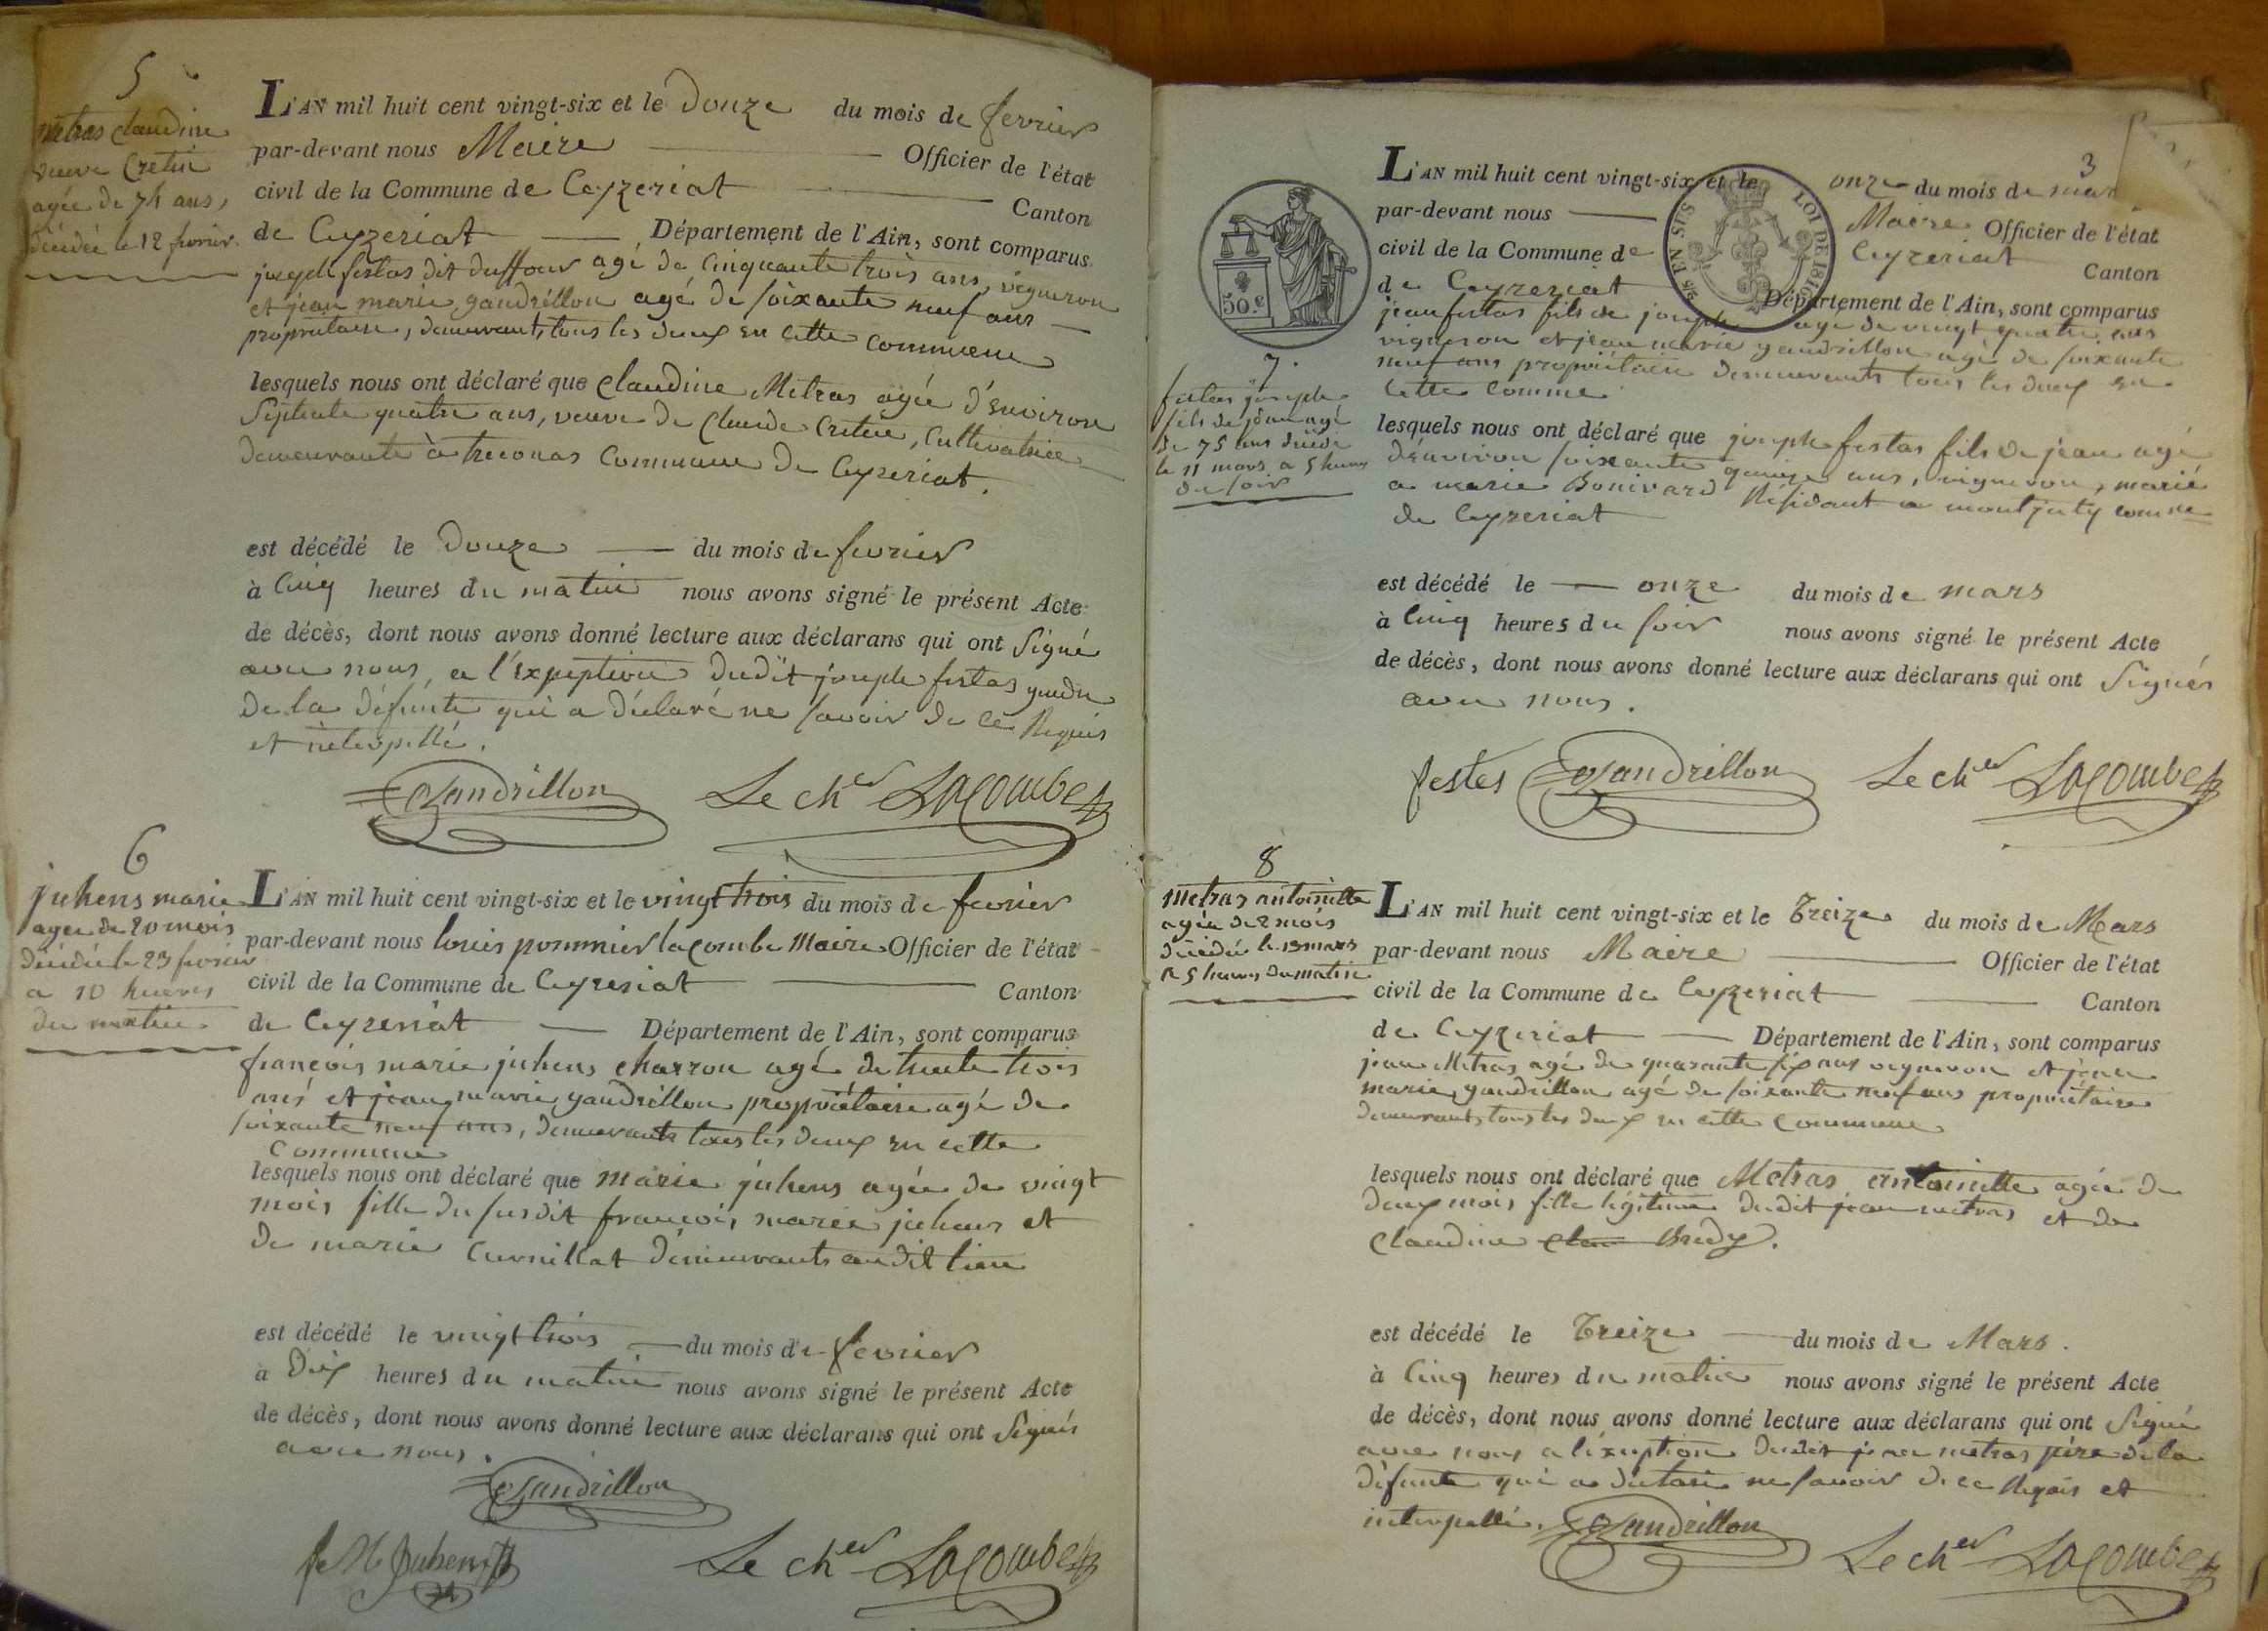 5
Metras claudine
veuve Cretin
agée de 74 ans,
décédée le 12 fevrier.
L'AN mil huit cent vingt-six et le douze du mois de fevrier
par-devant nous Maire Officier de l'état
civil de la Commune de Ceyzeriat Canton
de Ceyzeriat Département de l'Ain, sont comparus
joseph festas dit duffour agé de Cinquante trois ans, vigneron
et jean marie gandrillon agé de soixante neuf ans
propriétaire, demeurants tous les deux en cette commune
lesquels nous ont déclaré que Claudine Metras agée d'Environ
Septente quatre ans, veuve de Claude Cretin, Cultivatrice
demeurante à treconas Commune de Ceyzeriat.
est décédé le douze du mois de fevrier
à Cinq heures du matin nous avons signé le présent Acte
de décès, dont nous avons donné lecture aux déclarans qui ont Signé
avec nous, a l'Exception dudit joseph festas gendre
de la défunte qui a déclaré ne savoir de ce Requis
et interpellé.
Gandrillon Le cher Lacombe
6
juhens marie
agée de 20 mois
décédée le 23 fevrier
a 10 heures
du matin
L'AN mil huit cent vingt-six et le vingt trois du mois de fevrier
par-devant nous louis pommier lacombe Maire Officier de l'état
civil de la Commune de Ceyzeriat Canton
de Ceyzeriat Département de l'Ain, sont comparus
françois marie juhens charron agé de trente trois
ans et jean marie gandrillon propriétaire agé de
soixante neuf ans, demeurants tous les deux en cette
Commune
lesquels nous ont déclaré que marie juhens agée de vingt
mois fille du susdit françois marie juhens et
de marie Curnillat demeurants audit lieu
est décédé le vingt trois du mois de fevrier
à Dix heures du matin nous avons signé le présent Acte
de décès, dont nous avons donné lecture aux déclarans qui ont Signés
avec nous.
Gandrillon
f M Juhens Le cher Lacombe
3
50.c
LOI DE 1816
7.
festas joseph
fils de jean agé
de 75 ans décédé
le 11 mars a 5 heures
du soir
L'AN mil huit cent vingt-six et le onze du mois de mar
par-devant nous Maire Officier de l'état
civil de la Commune de Ceyzeriat Canton
de Ceyzeriat Département de l'Ain, sont comparus
jean festas fils de joseph agé de vingt quatre ans
vigneron et jean marie gandrillon agé de soixante
neuf ans propriétaire demeurants tous les deux en
cette comme
lesquels nous ont déclaré que joseph festas fils de jean agé
d'environ soixante quinze ans, vigneron, marié
a marie Bonivard Résidant a montjuly comne
de Ceyzeriat
est décédé le onze du mois de mars
à Cinq heures du soir nous avons signé le présent Acte
de décès, dont nous avons donné lecture aux déclarans qui ont Signés
avec nous.
festes Gandrillon Le cher Lacombe
8
Metras antoinette
agée de 2 mois
décédée le 13 mars
a 5 heures du matin
L'AN mil huit cent vingt-six et le Treize du mois de Mars
par-devant nous Maire Officier de l'état
civil de la Commune de Ceyzeriat Canton
de Ceyzeriat Département de l'Ain, sont comparus
jean Metras agé de quarante six ans vigneron et jean
marie gandrillon agé de soixante neuf ans propriétaire
demeurants tous les deux en cette Commune
lesquels nous ont déclaré que Metras antoinette agée de
deux mois fille légitime dudit jean metras et de
Claudine Bredy.
est décédé le Treize du mois de Mars.
à Cinq heures du matin nous avons signé le présent Acte
de décès, dont nous avons donné lecture aux déclarans qui ont Signé
avec nous a l'exception dudit jean metras père de la
défunte qui a déclaré ne savoir de ce Requis et
interpellé. Gandrillon
Le cher Lacombe